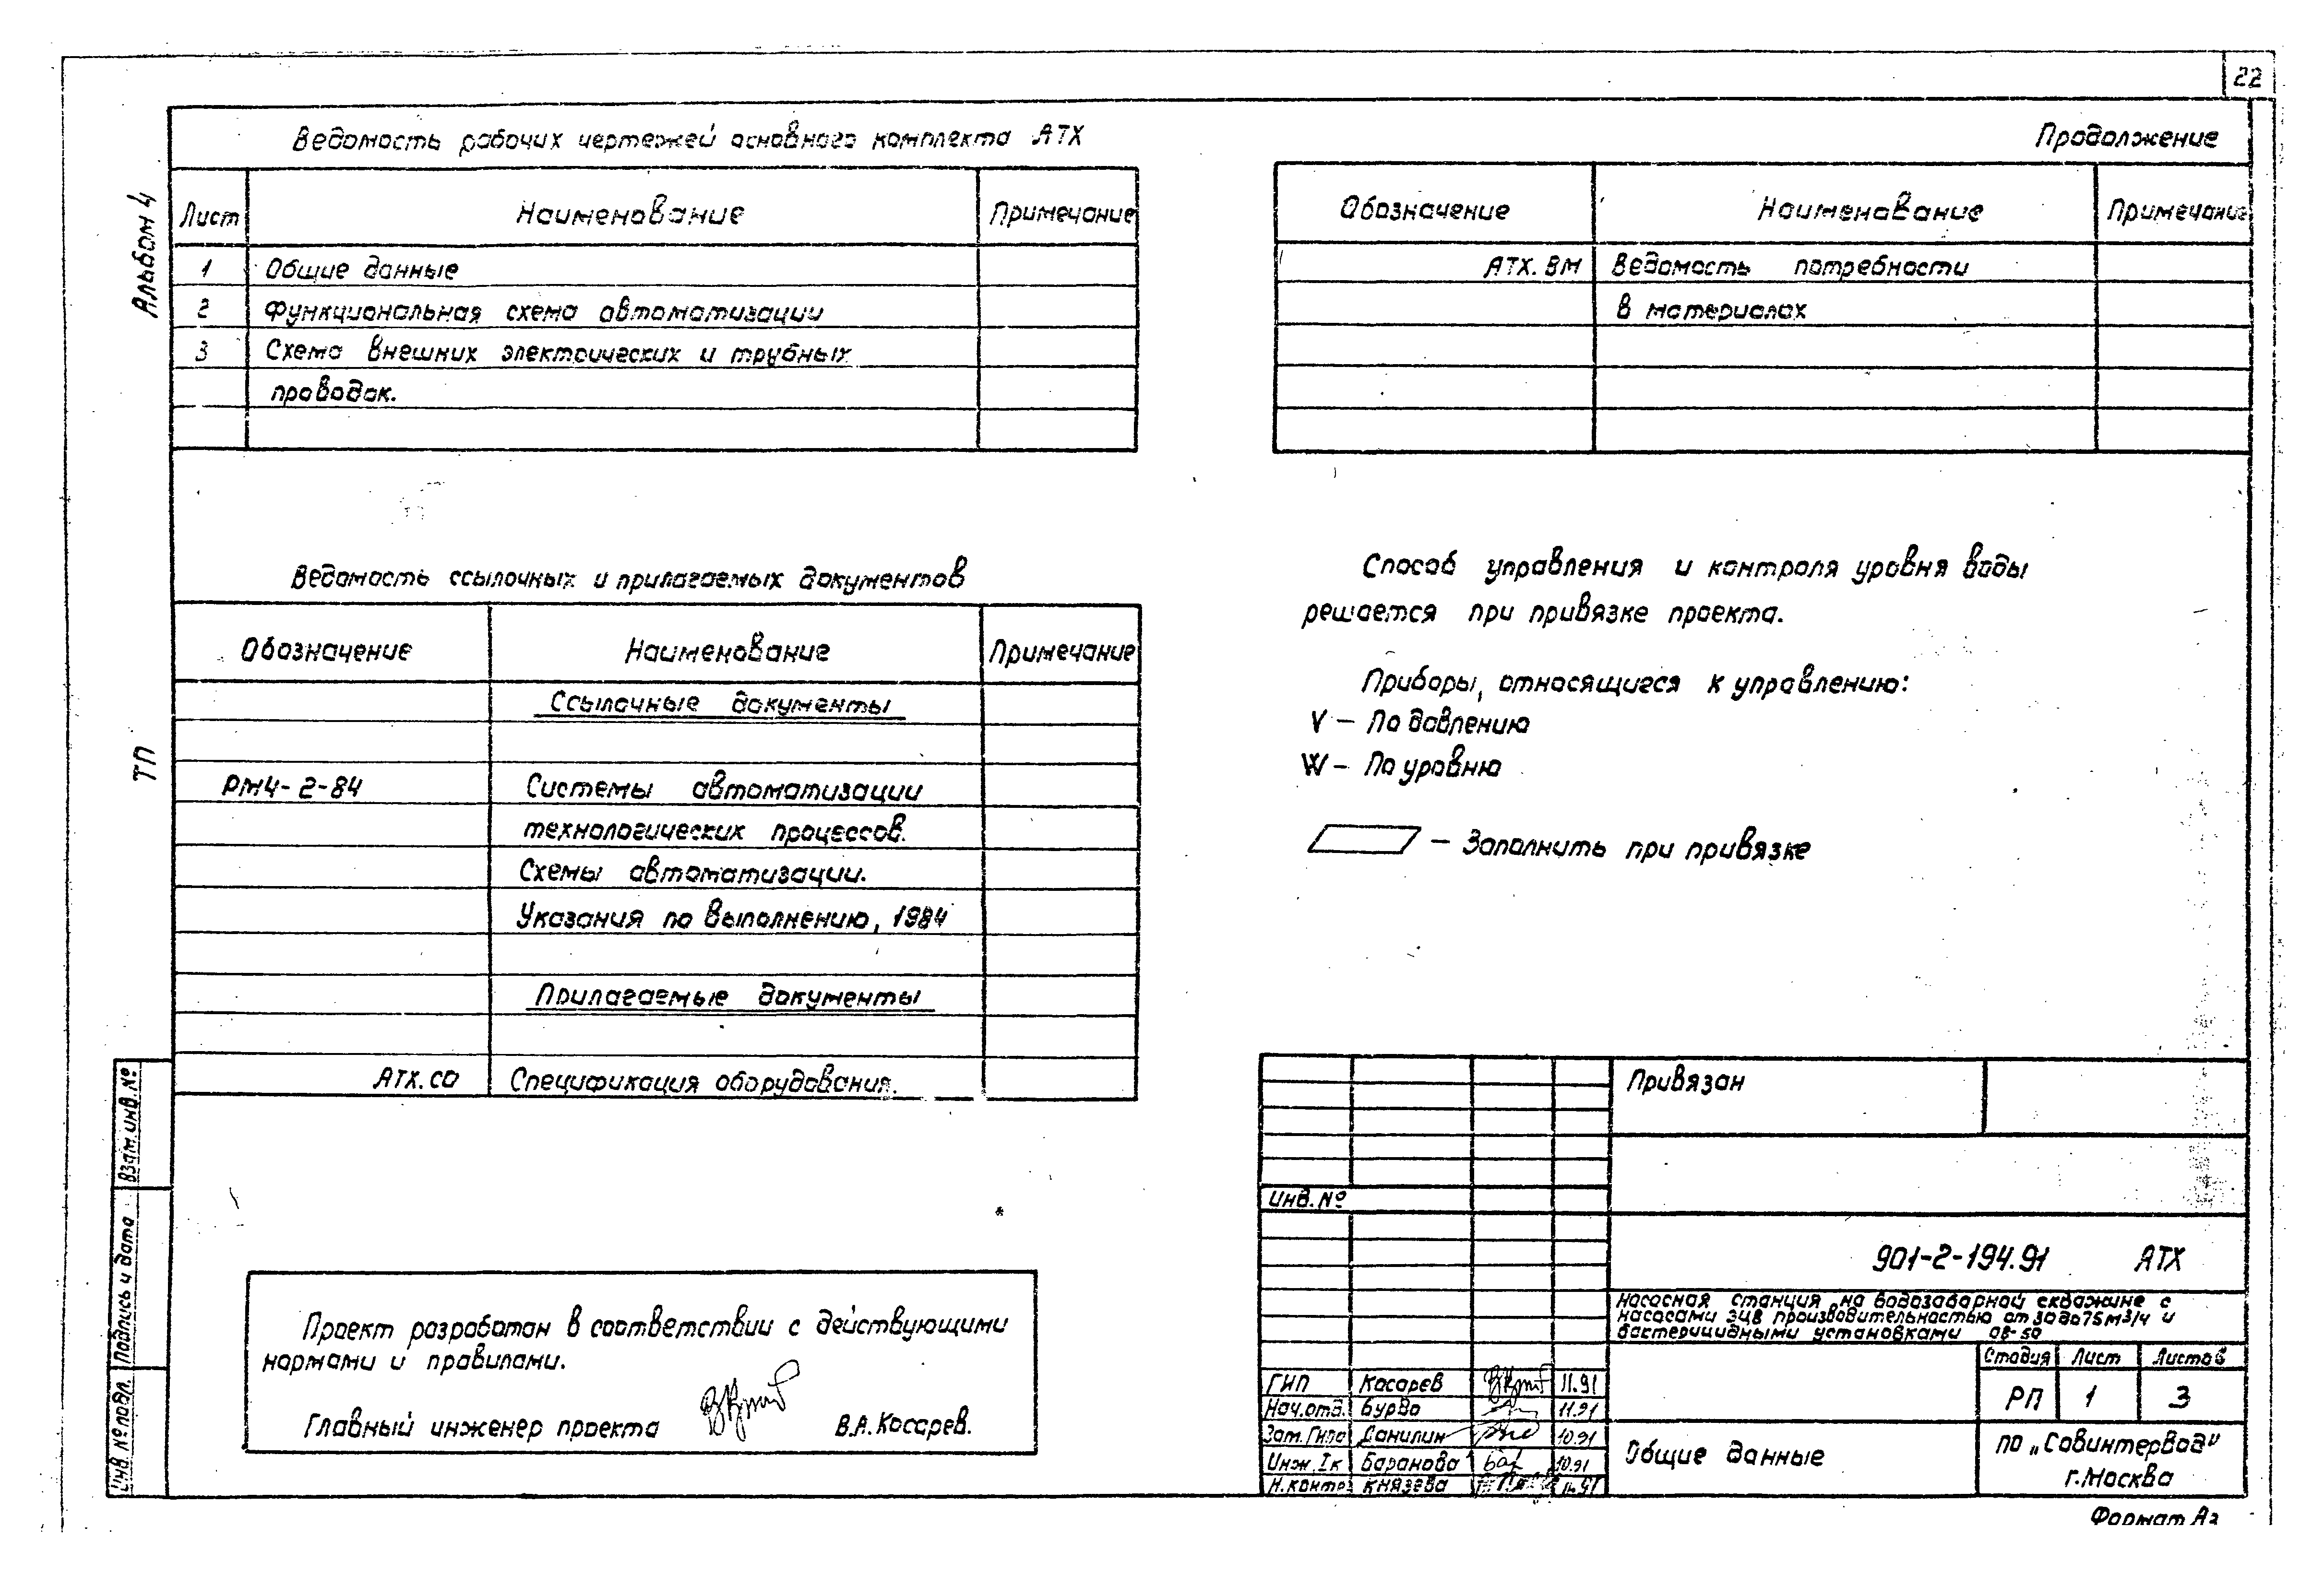 22
Альбом 4
ТП
Ведомость рабочих чертежей основного комплекта АТХ
Лист Наименование Примечание
1 Общие данные
2 Функциональная схема автоматизации
3 Схема внешних электрических и трубных
проводок.
Ведомость ссылочных и прилагаемых документов
Обозначение Наименование Примечание
Ссылочные документы
РМ4-2-84 Системы автоматизации
технологических процессов.
Схемы автоматизации.
Указания по выполнению, 1984
Прилагаемые документы
АТХ.СО Спецификация оборудования.
Проект разработан в соответствии с действующими
нормами и правилами.
Главный инженер проекта В.А.Косарев.
Продолжение
Обозначение Наименование Примечание
АТХ.ВМ Ведомость потребности
в материалах
Способ управления и контроля уровня воды
решается при привязке проекта.
Приборы, относящиеся к управлению:
V – По давлению
W – По уровню
– Заполнить при привязке
Привязан
Инв.№
901-2-194.91 АТХ
Насосная станция на водозаборной скважине с
насосами ЭЦВ производительностью от 30 до 75 м3/ч и
бактерицидными установками ОВ-50
Стадия Лист Листов
РП 1 3
ГИП Косарев 11.91
Нач.отд. Бурва 11.91
Зам.Гипа Данилин 10.91
Инж.Iк Баранова 10.91
Н.контр. Князева 11.91
Общие данные
ПО „Совинтервод"
г.Москва
Формат А3
Взам.инв.№
Подпись и дата
Инв.№ подл.